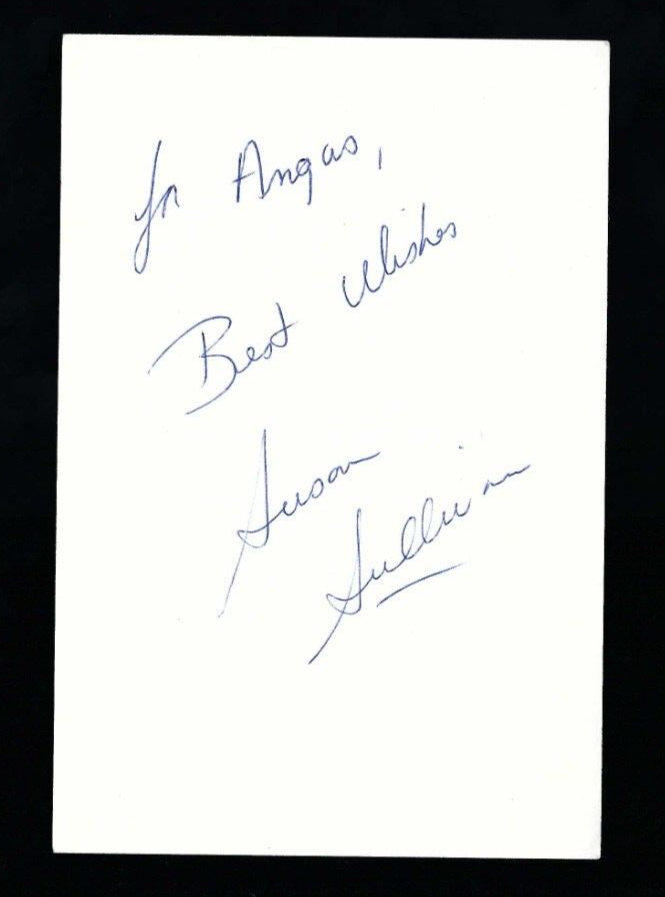 for Angus,
Best Wishes
Susan
Sullivan